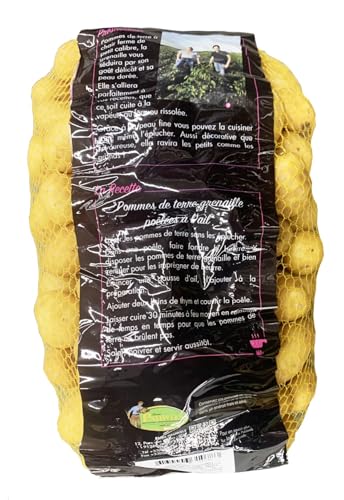 Pommes de terre à
chair ferme de
petit calibre, la
grenaille vous
séduira par son
goût délicat et sa
peau dorée.
Elle s'alliera
parfaitement à
vos recettes, que
ce soit cuite à la
vapeur, ou rissolée.
Grâce à sa peau fine vous pouvez la cuisiner
sans même l'éplucher. Aussi décorative que
savoureuse, elle ravira les petits comme les
grands !
Recette
Pommes de terre grenaille
poêlées à l'ail
les pommes de terre sans les éplucher.
poêle, faire fondre le beurre,
disposer les pommes de terre grenaille et bien
remuer pour les imprégner de beurre.
Émincer une gousse d'ail, l'ajouter à la
préparation.
Ajouter deux brins de thym et couvrir la poêle.
Laisser cuire 30 minutes à feu moyen en remuant
de temps en temps pour que les pommes de
terre ne brûlent pas.
Saler, poivrer et servir aussitôt.